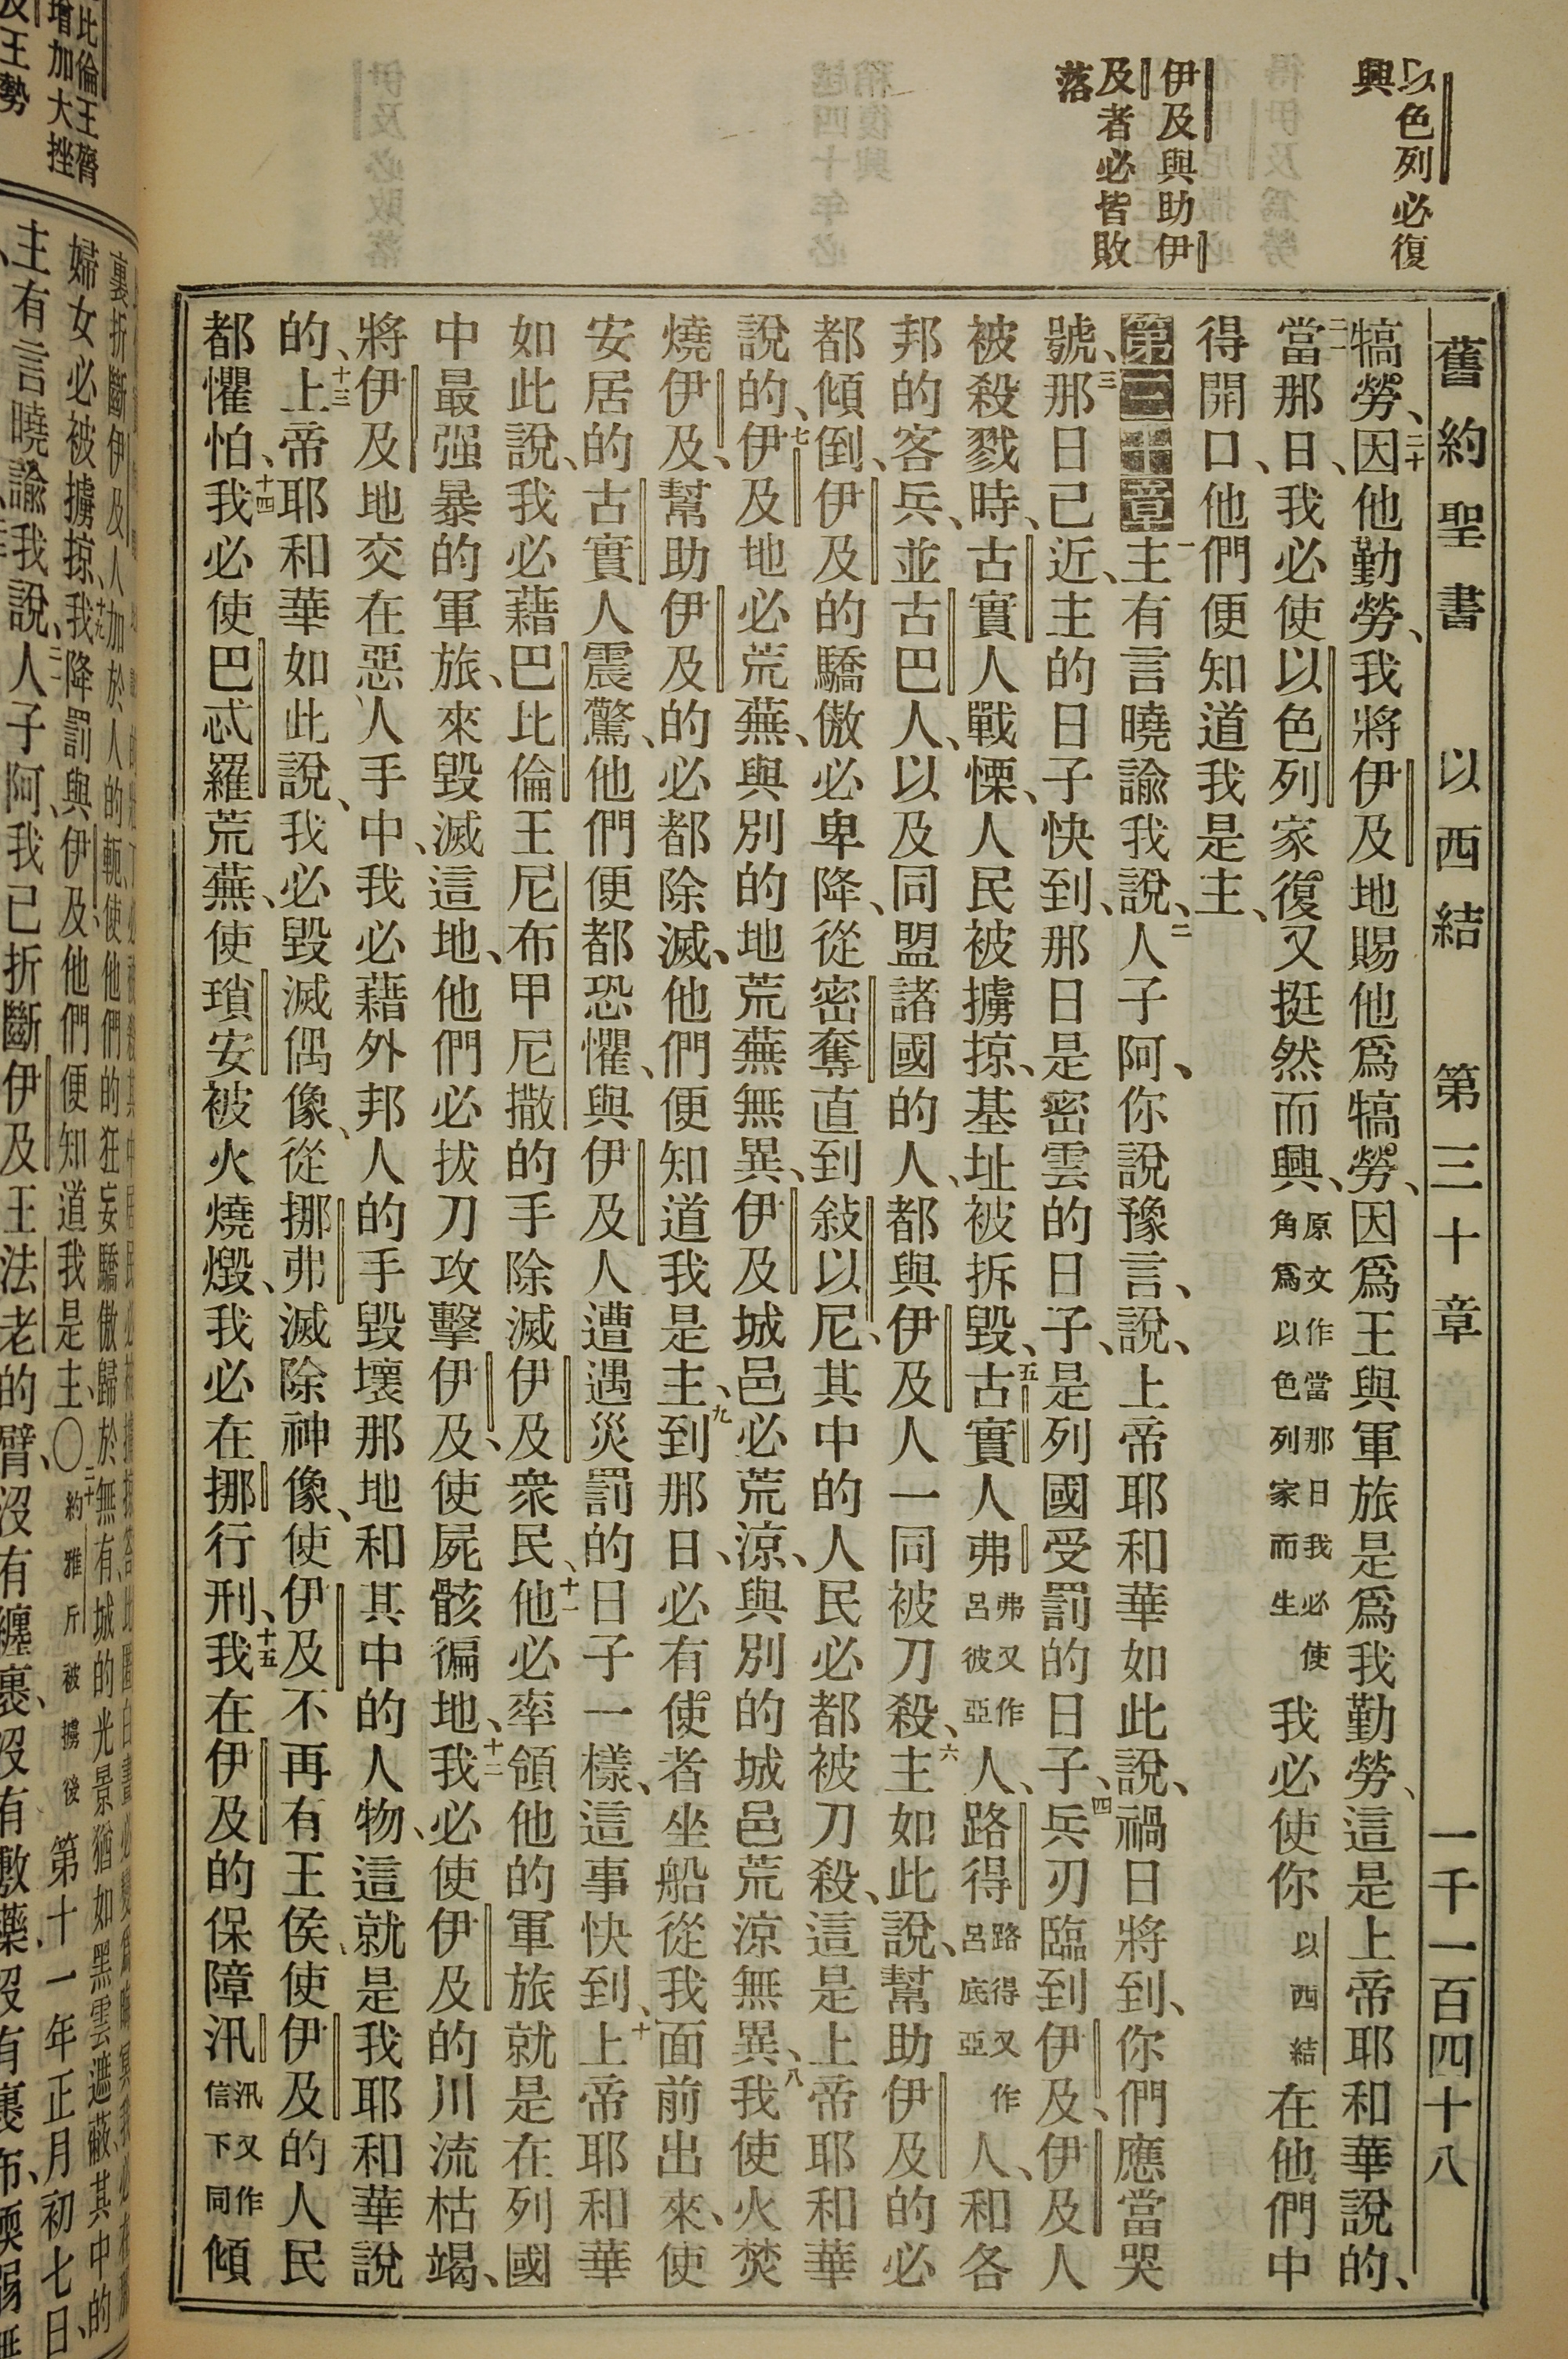 以色列必復
興
伊及與助伊
及者必皆敗
落
舊約聖書 以西結 第三十章 一千一百四十八
犒勞、二十因他勤勞、我將伊及地賜他爲犒勞、因爲王與軍旅是爲我勤勞、這是上帝耶和華說的、
二一當那日、我必使以色列家復又挺然而興、原文作當那日我必使角爲以色列家而生我必使你以西結在他們中
得開口、他們便知道我是主、
第三十章一主有言曉諭我說、二人子阿、你說豫言、說、上帝耶和華如此說、禍日將到、你們應當哭
號、三那日已近、主的日子快到、那日是密雲的日子、是列國受罰的日子、四兵刃臨到伊及、伊及人
被殺戮時、古實人戰慄、人民被擄掠、基址被拆毀、五古實人弗弗又作呂彼亞人、路得路得又作呂底亞人、和各
邦的客兵、並古巴人、以及同盟諸國的人、都與伊及人一同被刀殺、六主如此說、幫助伊及的必
都傾倒、伊及的驕傲必卑降、從密奪直到敍以尼、其中的人民必都被刀殺、這是上帝耶和華
說的、七伊及地必荒蕪、與別的地荒蕪無異、伊及城邑必荒涼、與別的城邑荒涼無異、八我使火焚
燒伊及、幫助伊及的必都除滅、他們便知道我是主、九到那日、必有使者坐船從我面前出來、使
安居的古實人震驚、他們便都恐懼、與伊及人遭遇災罰的日子一樣、這事快到、十上帝耶和華
如此說、我必藉巴比倫王尼布甲尼撒的手除滅伊及衆民、十一他必率領他的軍旅就是在列國
中最强暴的軍旅、來毀滅這地、他們必拔刀攻擊伊及、使屍骸徧地、十二我必使伊及的川流枯竭、
將伊及地交在惡人手中、我必藉外邦人的手毀壞那地和其中的人物、這就是我耶和華說
的、十三上帝耶和華如此說、我必毀滅偶像、從挪弗滅除神像、使伊及不再有王侯、使伊及的人民
都懼怕、十四我必使巴忒羅荒蕪、使瑣安被火燒燬、我必在挪行刑、十五我在伊及的保障汛汛又作信下同傾
比倫王膂
增加大挫
及王勢
婦女必被擄掠、十九我降罰與伊及他們便知道我是主、〇二十約雅斤被擄後第十一年正月初七日、
主有言曉諭我說、二一人子阿、我已折斷伊及王法老的臂、沒有纏裹、沒有敷藥